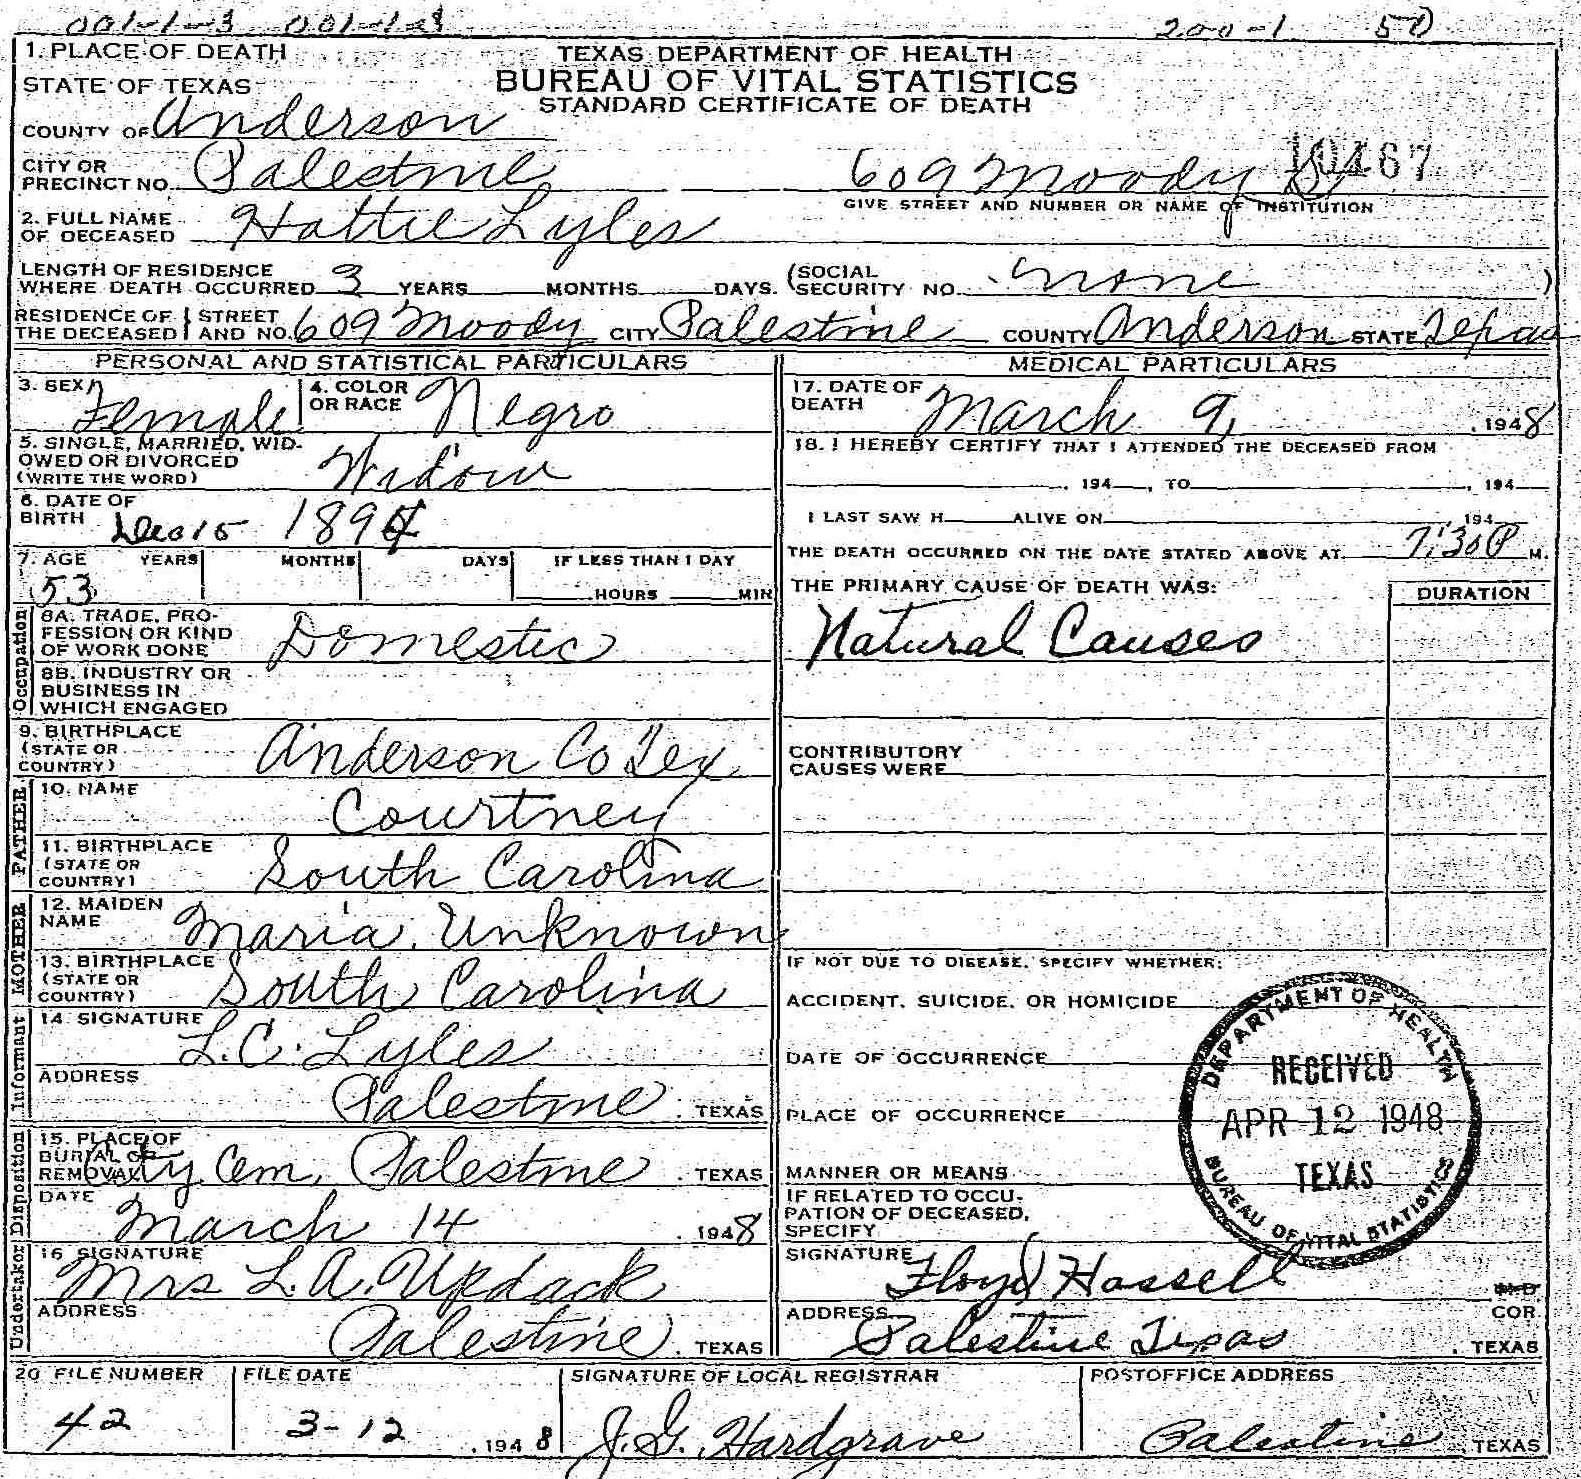 001-1-3 001-1-8 200-1 50
1. PLACE OF DEATH
STATE OF TEXAS
TEXAS DEPARTMENT OF HEALTH
BUREAU OF VITAL STATISTICS
STANDARD CERTIFICATE OF DEATH
COUNTY OF Anderson
10467
CITY OR PRECINCT NO. Palestine 609 Moody St
GIVE STREET AND NUMBER OR NAME OF INSTITUTION
2. FULL NAME OF DECEASED Hattie Lyles
LENGTH OF RESIDENCE WHERE DEATH OCCURRED 3 YEARS MONTHS DAYS. (SOCIAL SECURITY NO. none )
RESIDENCE OF THE DECEASED STREET AND NO. 609 Moody CITY Palestine COUNTY Anderson STATE Texas
PERSONAL AND STATISTICAL PARTICULARS
3. SEX Female 4. COLOR OR RACE Negro
5. SINGLE, MARRIED, WIDOWED OR DIVORCED (WRITE THE WORD) Widow
6. DATE OF BIRTH Dec 15 1894
7. AGE YEARS MONTHS DAYS IF LESS THAN 1 DAY
53 HOURS MIN
Occupation
8A. TRADE, PROFESSION OR KIND OF WORK DONE Domestic
8B. INDUSTRY OR BUSINESS IN WHICH ENGAGED
9. BIRTHPLACE (STATE OR COUNTRY) Anderson Co Tex
FATHER
10. NAME Courtney
11. BIRTHPLACE (STATE OR COUNTRY) South Carolina
MOTHER
12. MAIDEN NAME Maria. Unknown
13. BIRTHPLACE (STATE OR COUNTRY) South Carolina
Informant
14. SIGNATURE L.C. Lyles
ADDRESS Palestine. TEXAS
Disposition
15. PLACE OF BURIAL OR REMOVAL City Cem, Palestine. TEXAS
DATE March 14 . 1948
Undertaker
16 SIGNATURE Mrs L. A. Updack
ADDRESS Palestine. TEXAS
MEDICAL PARTICULARS
17. DATE OF DEATH March 9, . 1948
18. I HEREBY CERTIFY THAT I ATTENDED THE DECEASED FROM
. 194 , TO . 194
I LAST SAW H ALIVE ON 194
THE DEATH OCCURRED ON THE DATE STATED ABOVE AT 7:30 P M.
THE PRIMARY CAUSE OF DEATH WAS: DURATION
Natural Causes
CONTRIBUTORY CAUSES WERE
IF NOT DUE TO DISEASE, SPECIFY WHETHER:
ACCIDENT, SUICIDE, OR HOMICIDE
DATE OF OCCURRENCE
PLACE OF OCCURRENCE
MANNER OR MEANS
IF RELATED TO OCCUPATION OF DECEASED, SPECIFY
DEPARTMENT OF HEALTH
RECEIVED
APR 12 1948
TEXAS
BUREAU OF VITAL STATISTICS
SIGNATURE Floyd Hassell
COR
ADDRESS Palestine Texas . TEXAS
20 FILE NUMBER FILE DATE SIGNATURE OF LOCAL REGISTRAR POSTOFFICE ADDRESS
42 3-12 . 1948 J. G. Hardgrave Palestine . TEXAS